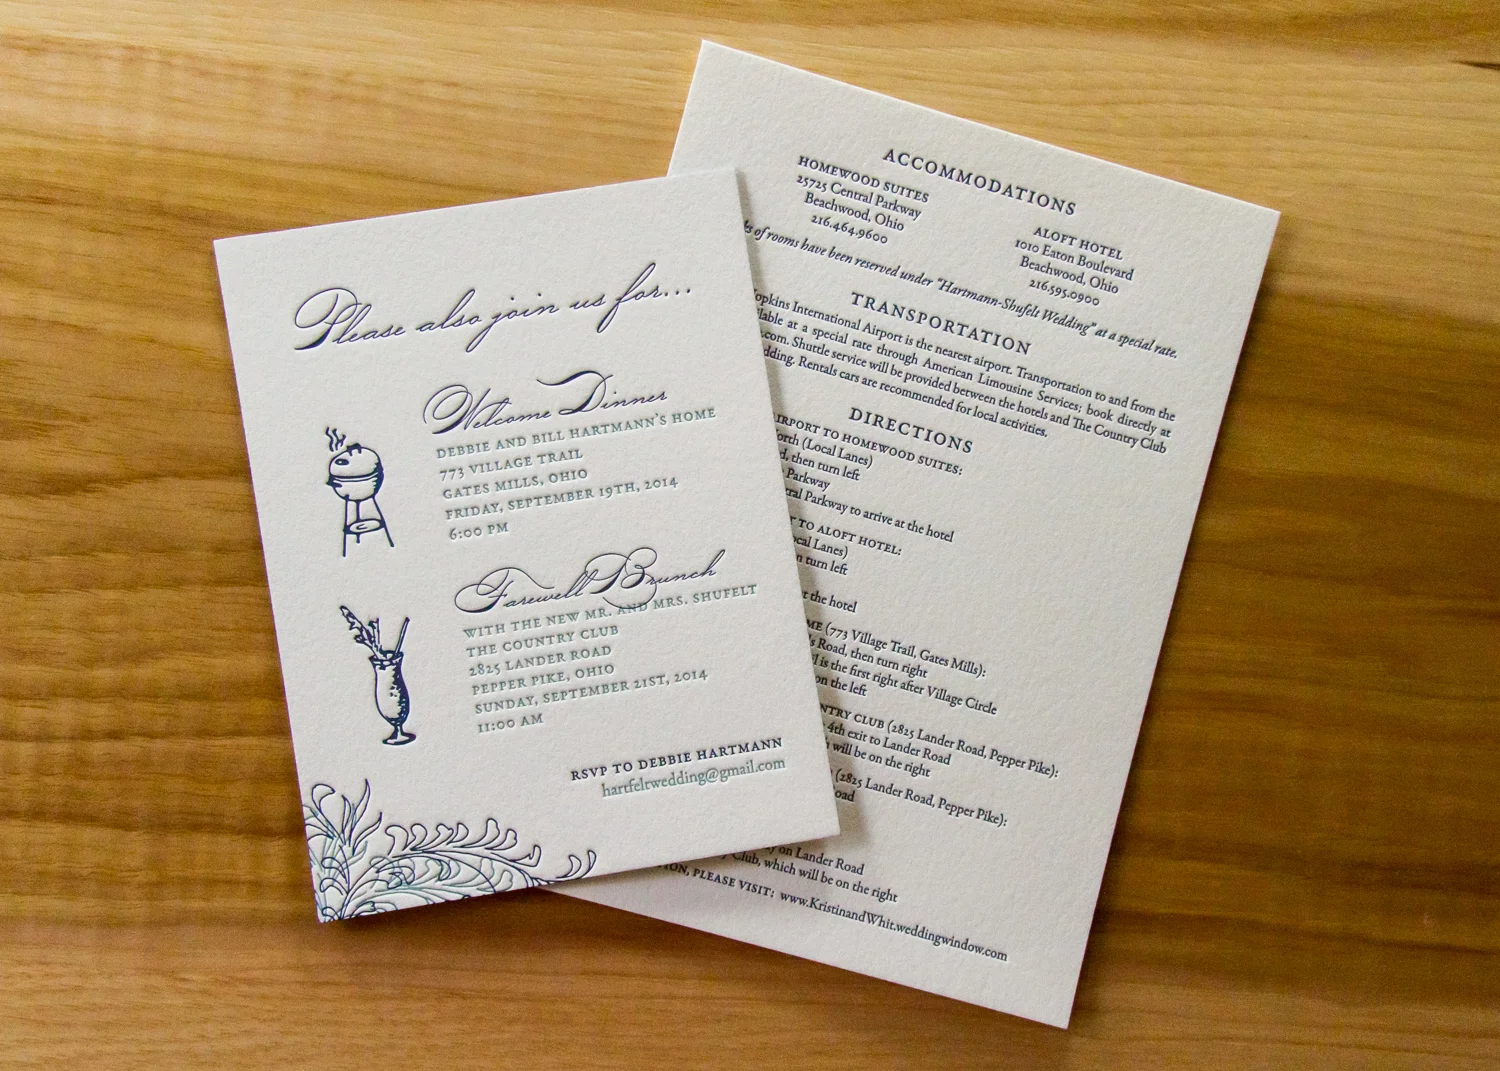 Please also join us for...
Welcome Dinner
DEBBIE AND BILL HARTMANN'S HOME
773 VILLAGE TRAIL
GATES MILLS, OHIO
FRIDAY, SEPTEMBER 19TH, 2014
6:00 PM
Farewell Brunch
WITH THE NEW MR. AND MRS. SHUFELT
THE COUNTRY CLUB
2825 LANDER ROAD
PEPPER PIKE, OHIO
SUNDAY, SEPTEMBER 21ST, 2014
11:00 AM
RSVP TO DEBBIE HARTMANN
hartfeltwedding@gmail.com
ACCOMMODATIONS
HOMEWOOD SUITES
25725 Central Parkway
Beachwood, Ohio
216.464.9600
ALOFT HOTEL
1010 Eaton Boulevard
Beachwood, Ohio
216.595.0900
of rooms have been reserved under "Hartmann-Shufelt Wedding" at a special rate.
TRANSPORTATION
opkins International Airport is the nearest airport. Transportation to and from the
ilable at a special rate through American Limousine Services; book directly at
.com. Shuttle service will be provided between the hotels and The Country Club
dding. Rentals cars are recommended for local activities.
DIRECTIONS
AIRPORT TO HOMEWOOD SUITES:
orth (Local Lanes)
d, then turn left
Parkway
ral Parkway to arrive at the hotel
T TO ALOFT HOTEL:
ocal Lanes)
n turn left
t the hotel
ME (773 Village Trail, Gates Mills):
s Road, then turn right
l is the first right after Village Circle
on the left
NTRY CLUB (2825 Lander Road, Pepper Pike):
4th exit to Lander Road
h will be on the right
(2825 Lander Road, Pepper Pike):
oad
y on Lander Road
y Club, which will be on the right
ION, PLEASE VISIT: www.KristinandWhit.weddingwindow.com